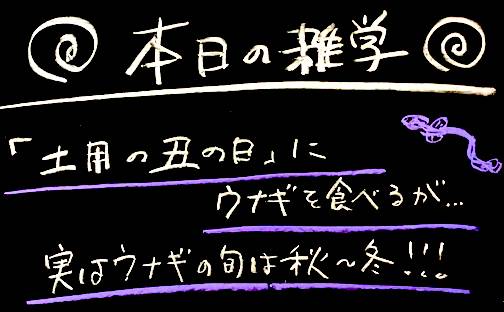 本日の雑学
「土用の丑の日」に
ウナギを食べるが…
実はウナギの旬は秋~冬!!!